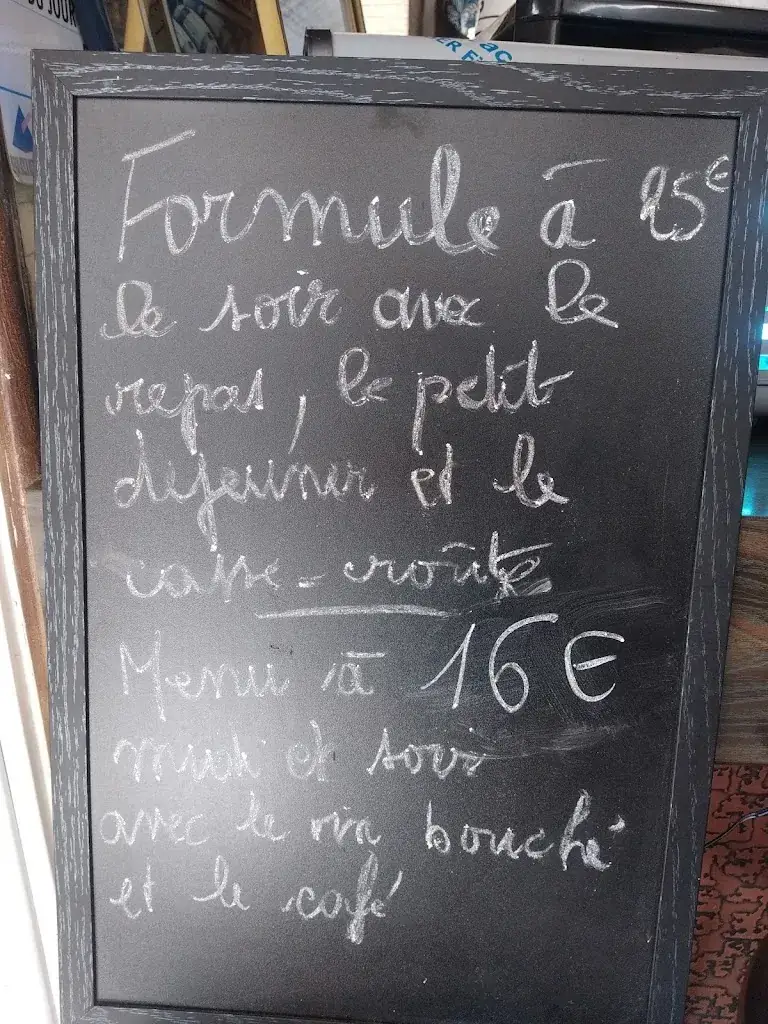 DU JOUR
Formule à 25€
le soir avec le
repas, le petit
dejeuner et le
casse-croûte
Menu à 16€
midi et soir
avec le vin bouché
et le café